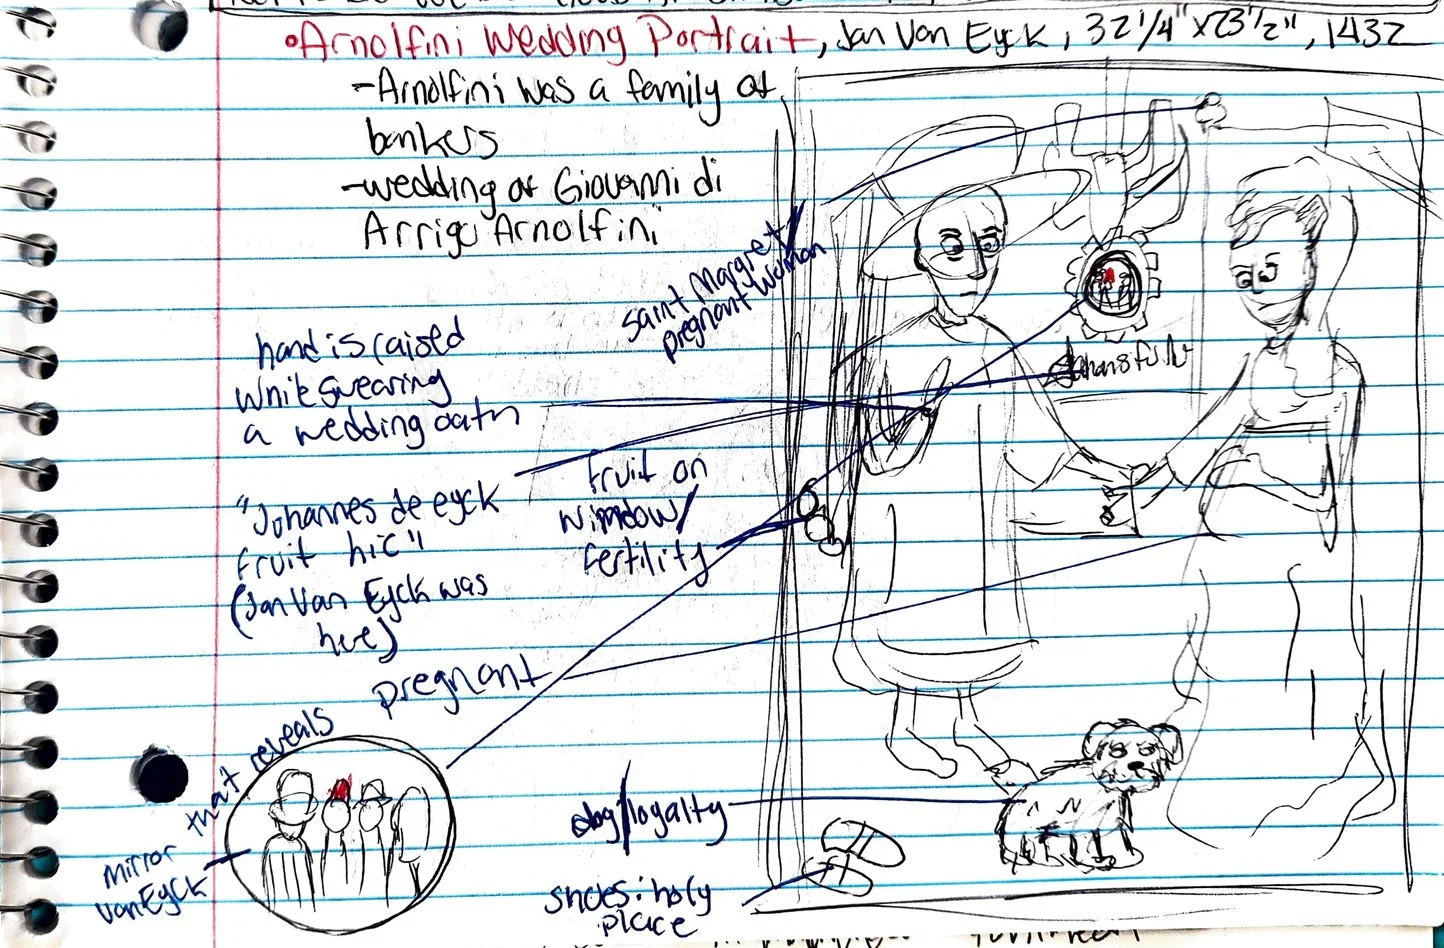 •Arnolfini Wedding Portrait, Jan Van Eyck, 32 1/4" x 23 1/2", 1432
-Arnolfini was a family of
bankers
-wedding of Giovanni di
Arrigo Arnolfini
saint Margret/
pregnant woman
hand is raised
while swearing
a wedding oath
"Johannes de eyck
fruit hic"
(Jan Van Eyck was
here)
fruit on
window/
fertility
pregnant
mirror
that reveals
van Eyck
dog/loyalty
shoes: holy
place